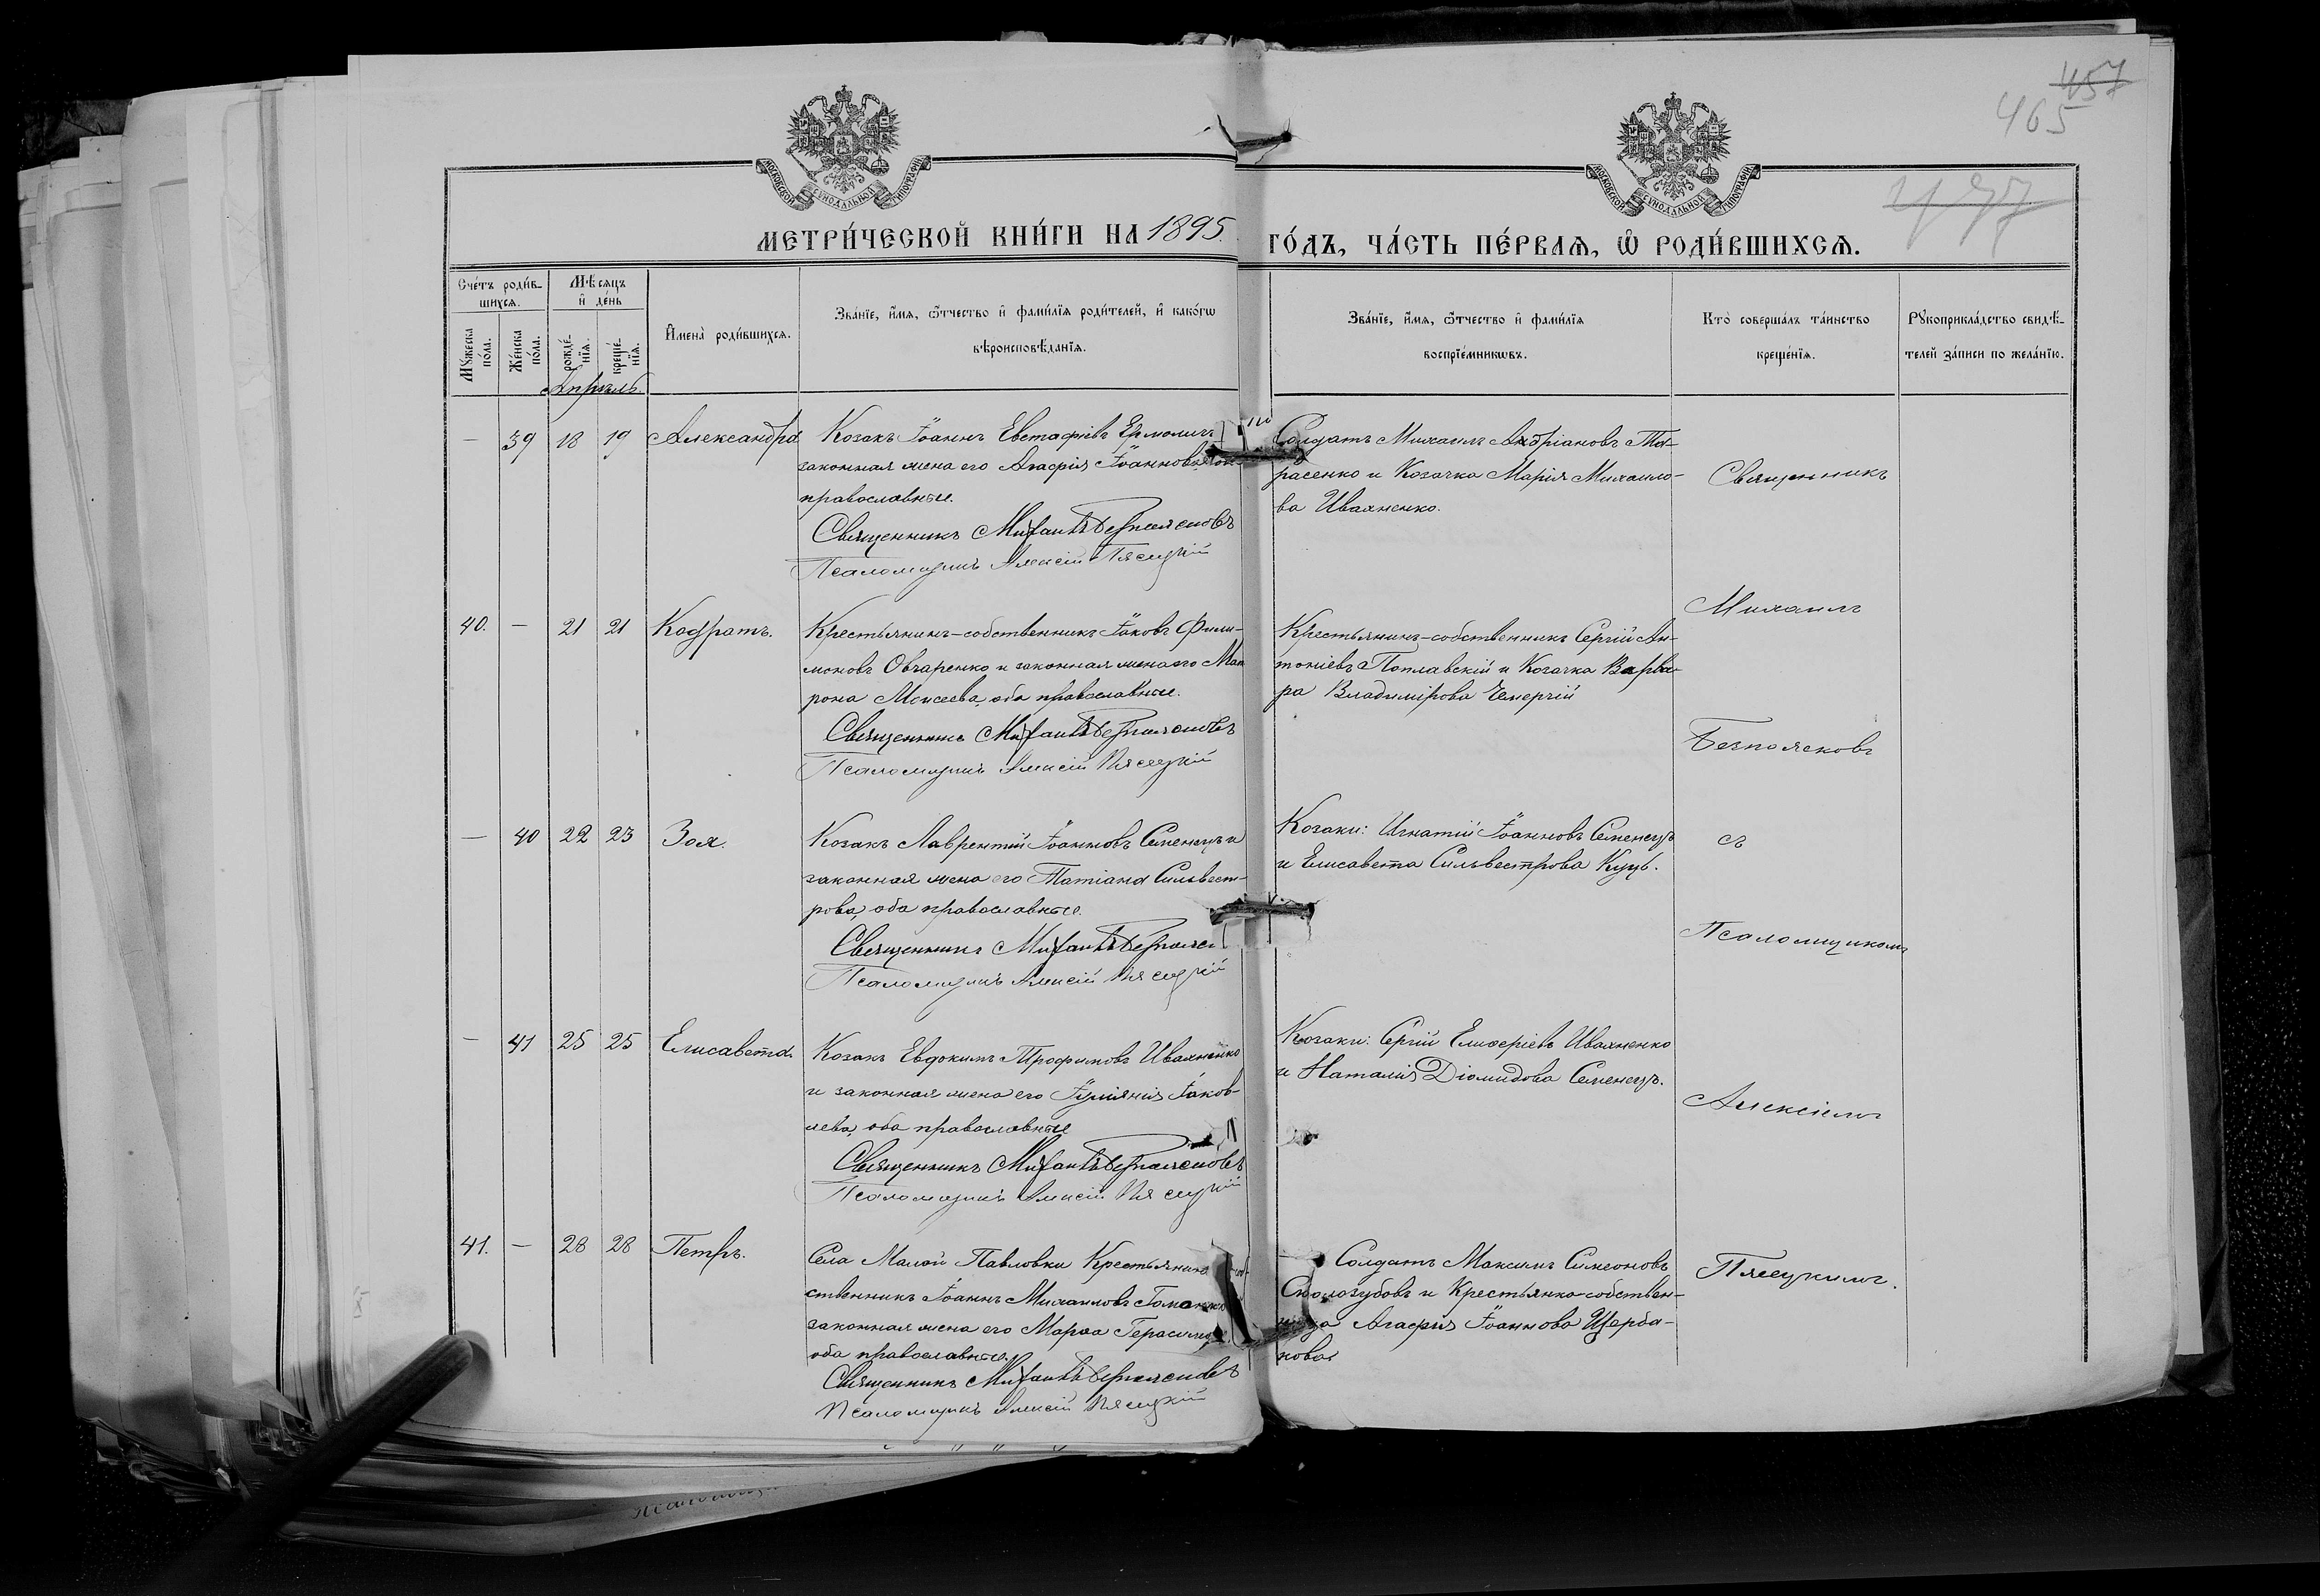 457
465
МОСКОВСКОЙ СѴНОДАЛЬНОЙ ТИПОГРАФІИ
МОСКОВСКОЙ СѴНОДАЛЬНОЙ ТИПОГРАФІИ
МЕТРИ́ЧЕСКОЙ КНИ́ГИ НА 1895. ГО́ДЪ, ЧА́СТЬ ПЕ́РВАѦ, Ѡ҃ РОДИ́ВШИХСѦ.
Сче́тъ роди́в-
шихсѧ.
Мѣ́сѧцъ
и҆ де́нь
Мꙋ́жеска
по́ла.
Же́нска
по́ла.
рожде́-
нїѧ.
креще́-
нїѧ.
И҆мена̀ роди́вшихсѧ.
Зва́нїе, и҆́мѧ, ѻ҆́тчество и҆ фами́лїѧ роди́телей, и҆ како́гѡ
вѣроисповѣ́данїѧ.
Зва́нїе, и҆́мѧ, ѻ҆́тчество и҆ фами́лїѧ
воспрїе́мникѡвъ.
Кто̀ соверша́лъ та́инство
креще́нїѧ.
Рꙋкоприкла́дство свидѣ́-
телей за́писи по жела́нїю.
Апрѣль.
— 39 18 19 Александра
Козакъ Іоаннъ Евстафіевъ Ермоличъ
законная жена его Агафія Іоаннова,
православные.
Священникъ Михаилъ Безпоясковъ
Псаломщикъ Алексій Пясецкій
Солдатъ Михаилъ Андріановъ Та-
расенко и Козачка Марія Михаило-
ва Ивахненко.
40. — 21 21 Кодратъ.
Крестьянинъ-собственникъ Іаковъ Фили-
моновъ Овчаренко и законная жена его Мат
рона Моисеева, оба православные.
Священникъ Михаилъ Безпоясковъ
Псаломщикъ Алексій Пясецкій
Крестьянинъ-собственникъ Сергій Ан-
тоніевъ Поплавскій и Козачка Варва-
ра Владимірова Чемерчій
— 40 22 23 Зоя.
Козакъ Лаврентій Іоанновъ Семенецъ и
законная жена его Татіана Сильвест-
рова, оба православные.
Священникъ Михаилъ Безпояск
Псаломщикъ Алексій Пясецкій
Козаки: Игнатій Іоанновъ Семенецъ
и Елисавета Сильвестрова Куць.
— 41 25 25 Елисавета
Козакъ Евдокимъ Трофимовъ Ивахненко
и законная жена его Іуліанія Іаков-
лева, оба православные
Священникъ Михаилъ Безпоясковъ
Псаломщикъ Алексій Пясецкій
Козаки: Сергій Елиферіевъ Ивахненко
и Наталія Діомидова Семенецъ.
41. — 28 28 Петръ.
Села Малой Павловки Крестьянинъ
ственникъ Іоаннъ Михаиловъ
законная жена его Марѳа
оба православные.
Священникъ Михаилъ Безпоясковъ
Псаломщикъ Алексій Пясецкій
Солдатъ Максимъ Симеоновъ
Столозубовъ и Крестьянка-собствен-
ница Агафія Іоаннова Щерба-
кова
Священникъ
Михаилъ
Безпоясковъ
съ
Псаломщикомъ
Алексіемъ
Пясецкимъ.